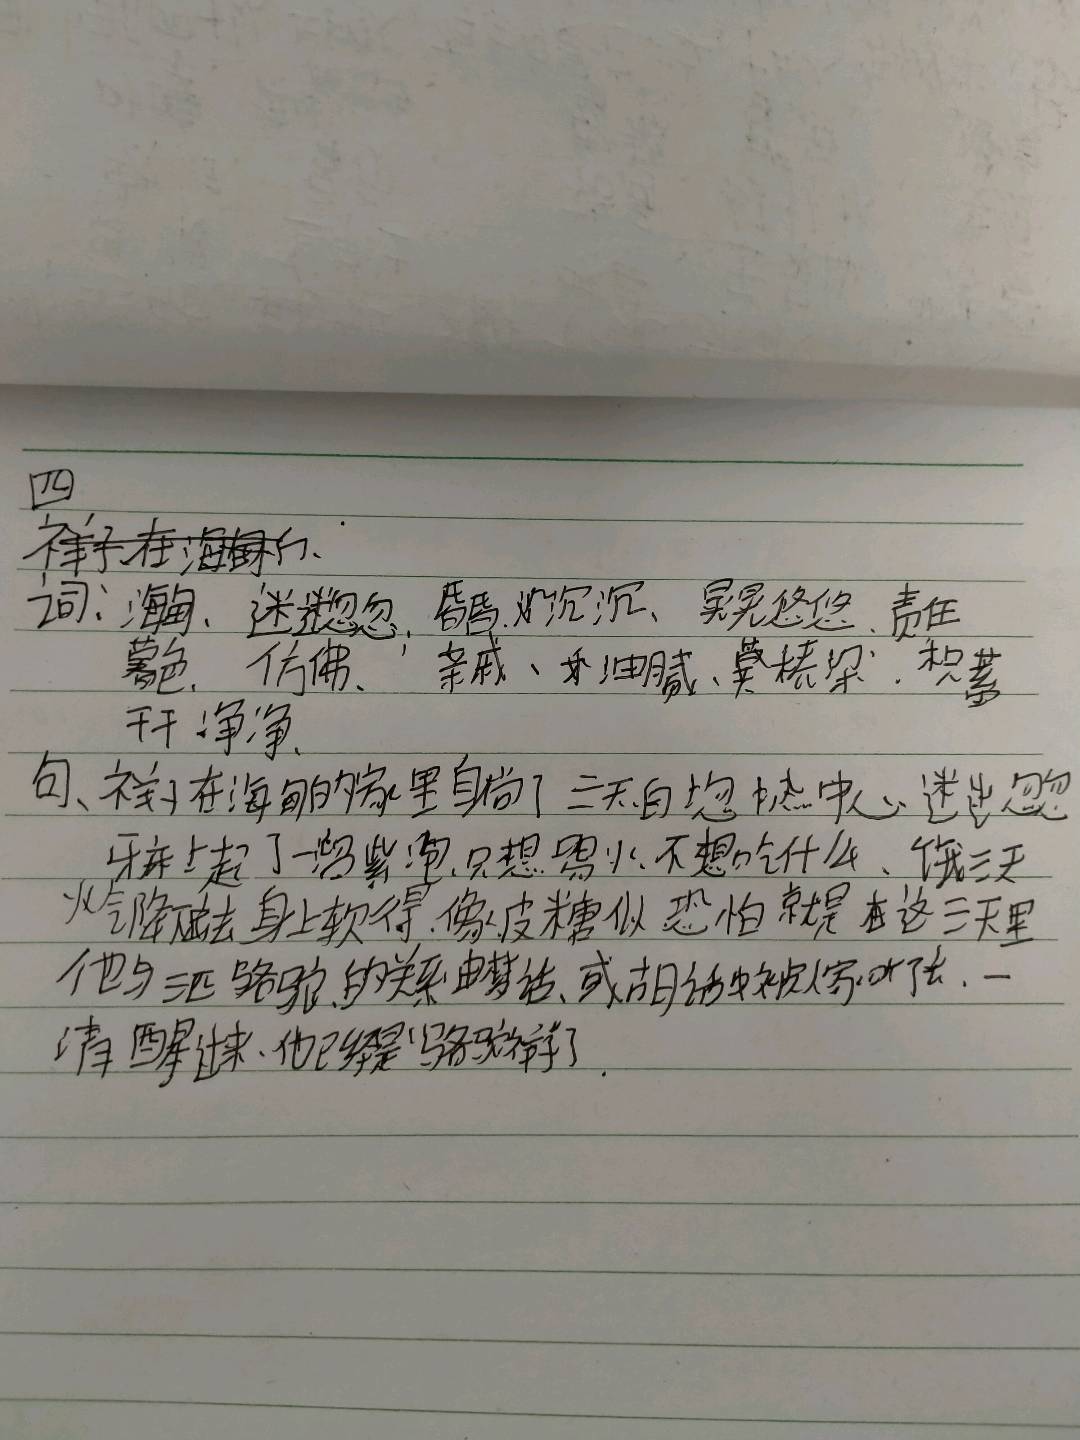 四
祥子在海甸
词：海甸、迷迷忽忽，昏昏沉沉、晃晃悠悠、责任
暮色、仿佛、亲戚、油腻、莫椿梁、积蓄
干干净净、
句、祥子在海甸的家里身尚了三天自忽热中心、迷迷忽忽
牙床上起了一溜紫泡、只想喝水、不想吃什么、饿三天
火气降下去身上软得、像皮糖似恐怕就是在这三天里
他与三匹骆驼的关系由梦话、或胡话中被人家听了去、一
清醒过来、他已经是“骆驼祥子